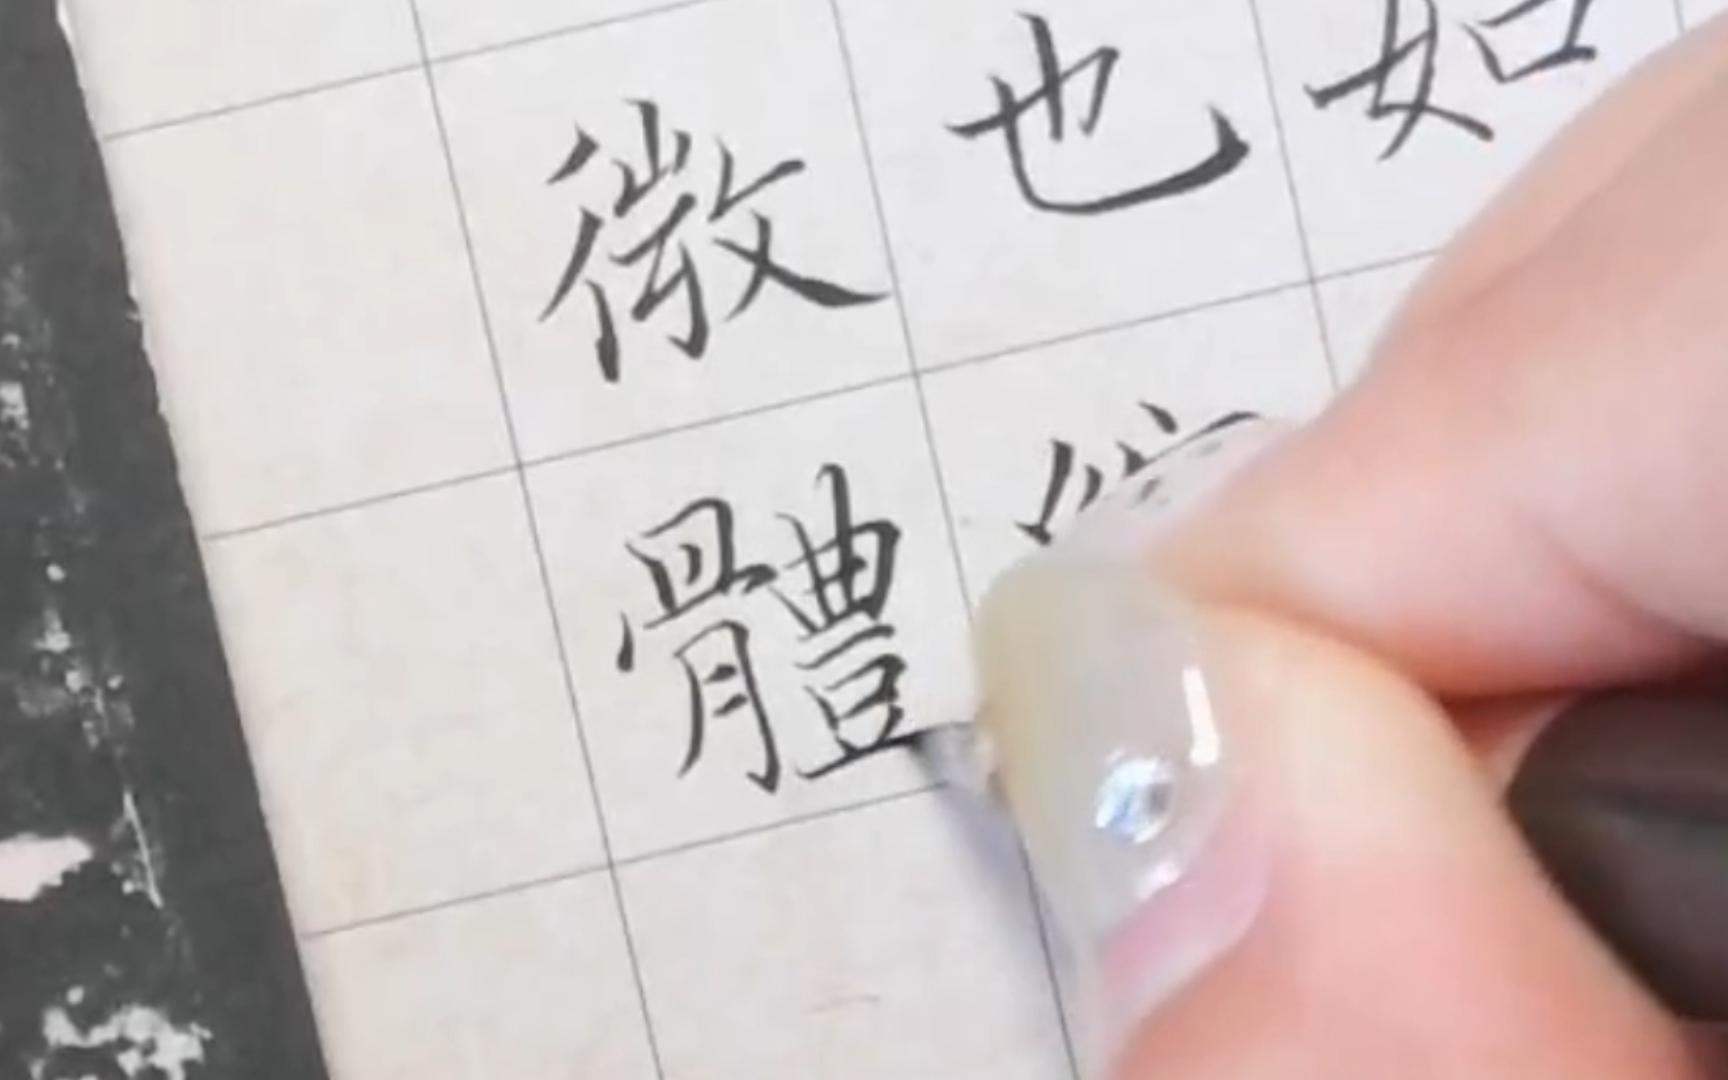 如
也
微體